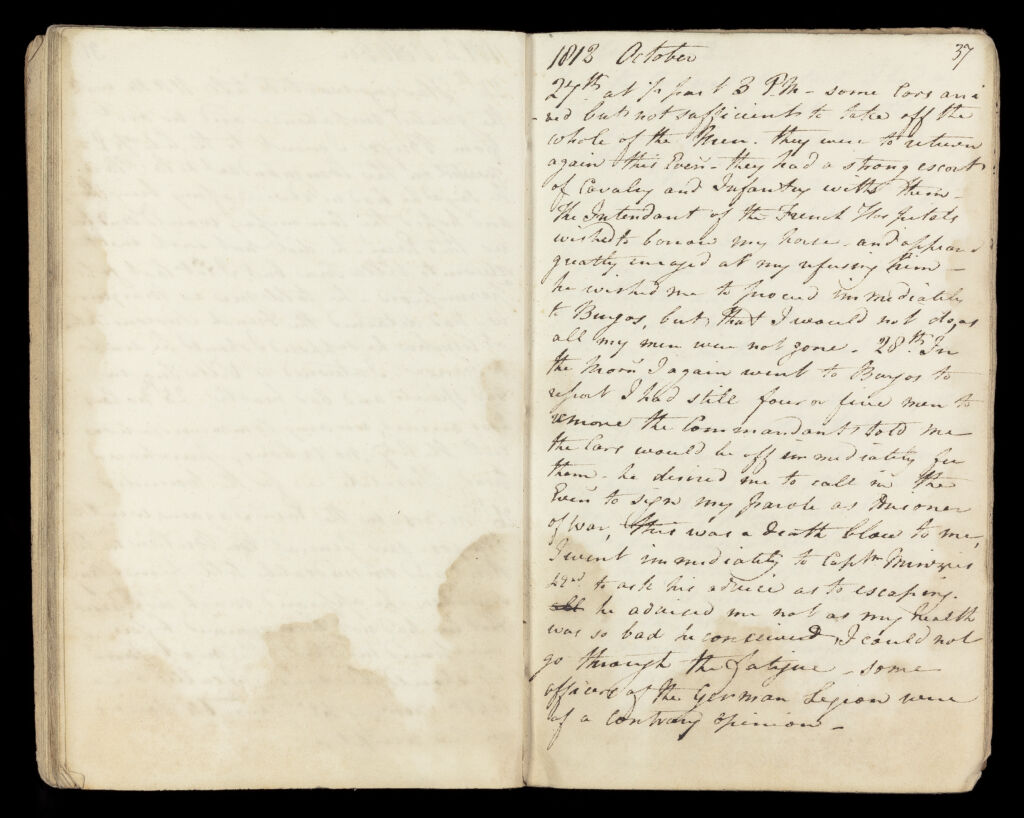 1812 October 37
27th at ½ past 3 P.M - some Cars arri
-ved but not sufficient to take off the
whole of the Men - they were to return
again this Even - they had a strong escort
of Cavalry and Infantry with them -
the Intendant of the French Hospitals
wished to borrow my horse - and appeared
greatly enraged at my refusing him -
he wished me to proceed immediately
to Burgos, but that I would not do, as
all my men were not gone - 28th In
the Morn I again went to Burgos to
report I had still four or five men to
remove the Commandant told me
the Cars would be off immediately for
them - he desired me to call in the
Even to sign my parole as Prisoner
of War, this was a death blow to me,
I went immediately to Captn
42nd to ask his advice as to escaping.
he advised me not as my health
was so bad he conceived I could not
go through the fatigue - some
officers of the German Legion were
of a contrary opinion -